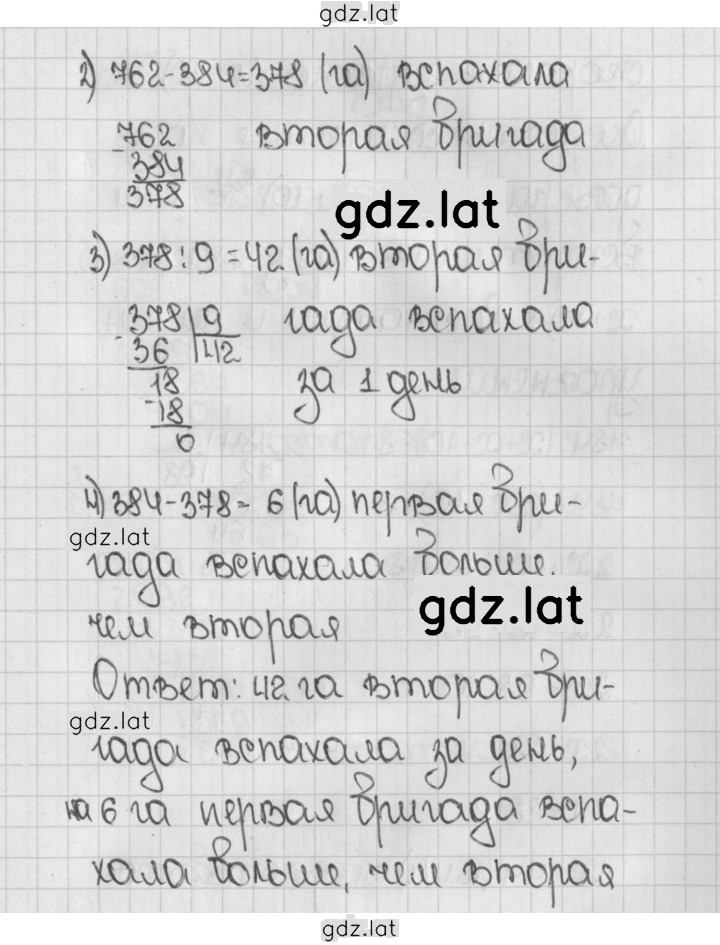 gdz.lat
2) 762-384=378 (га) вспахала
-762 вторая бригада
384
378
gdz.lat
3) 378:9=42 (га) вторая бри-
-378|9 гада вспахала
36 |42
18 за 1 день
-18
0
4) 384-378= 6 (га) первая бри-
gdz.lat
гада вспахала больше.
gdz.lat
чем вторая
Ответ: 42 га вторая бри-
gdz.lat
гада вспахала за день,
на 6 га первая бригада вспа-
хала больше, чем вторая
gdz.lat